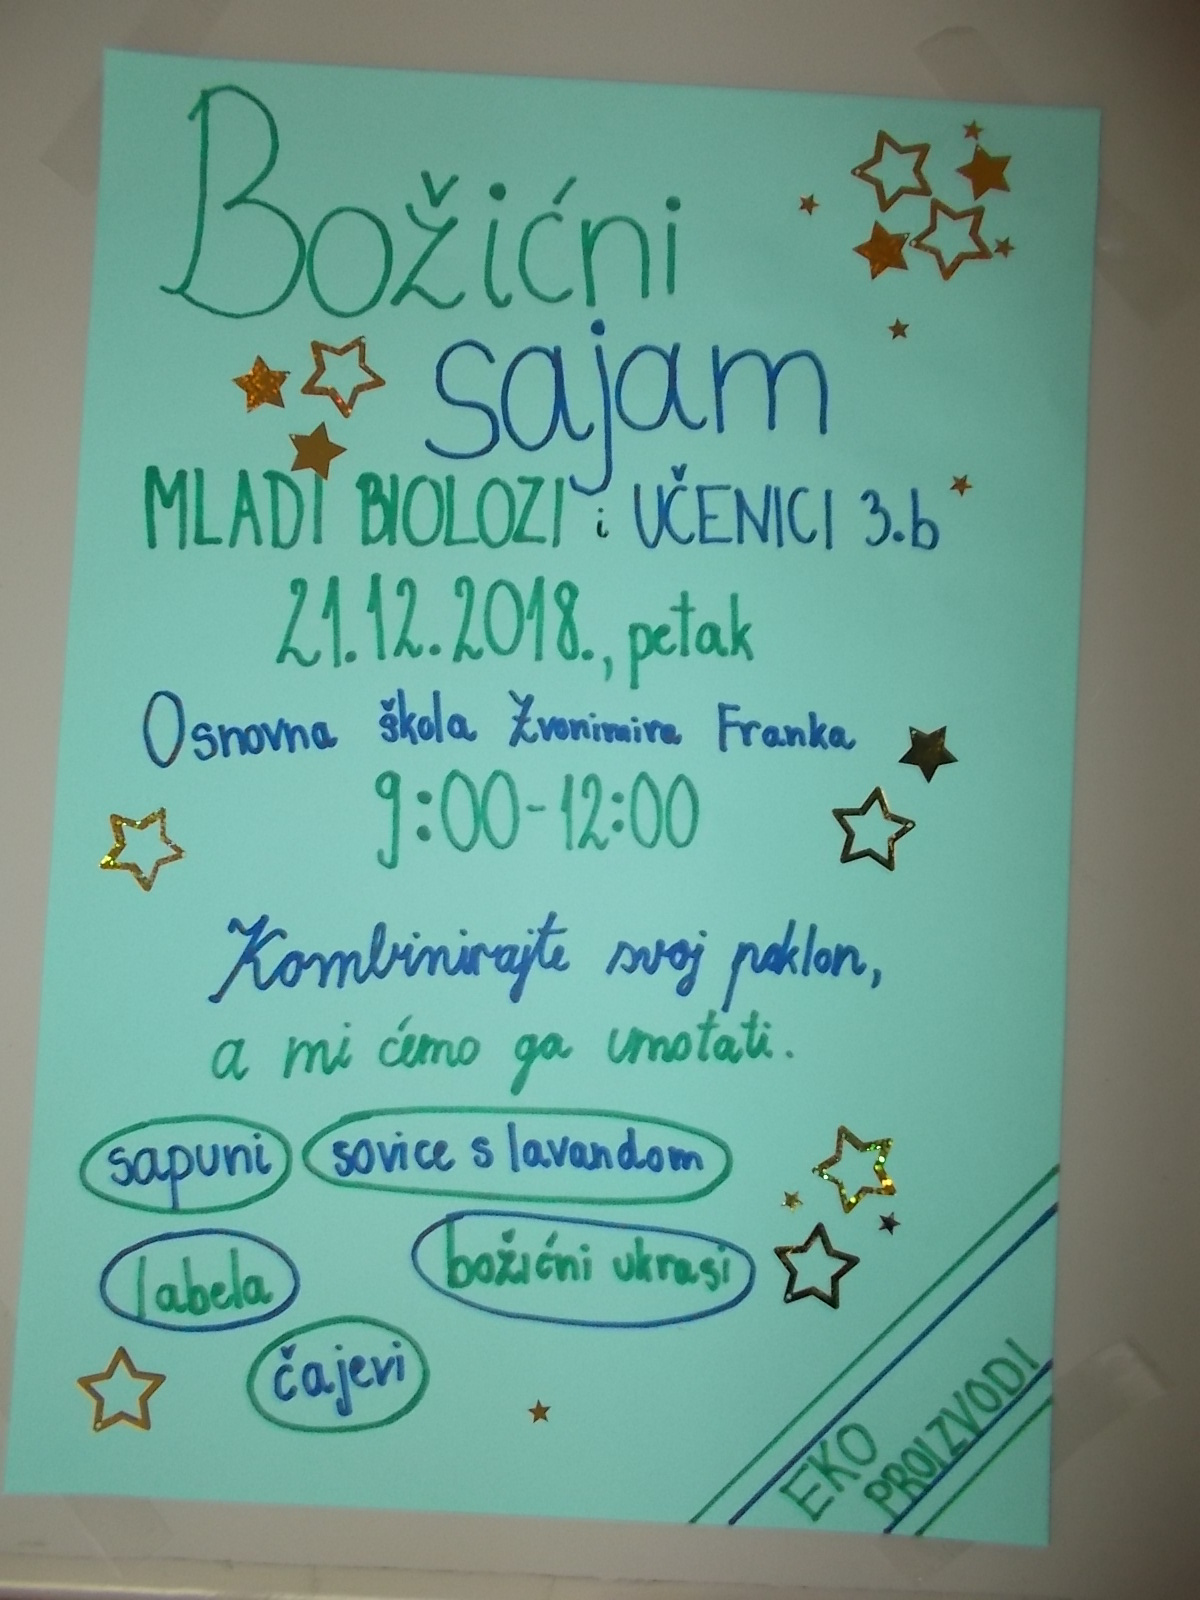 Božićni
sajam
MLADI BIOLOZI i UČENICI 3.b
21.12.2018., petak
Osnovna škola Zvonimira Franka
9:00-12:00
Kombinirajte svoj poklon,
a mi ćemo ga umotati.
sapuni sovice s lavandom
labela božićni ukrasi
čajevi
EKO
PROIZVODI